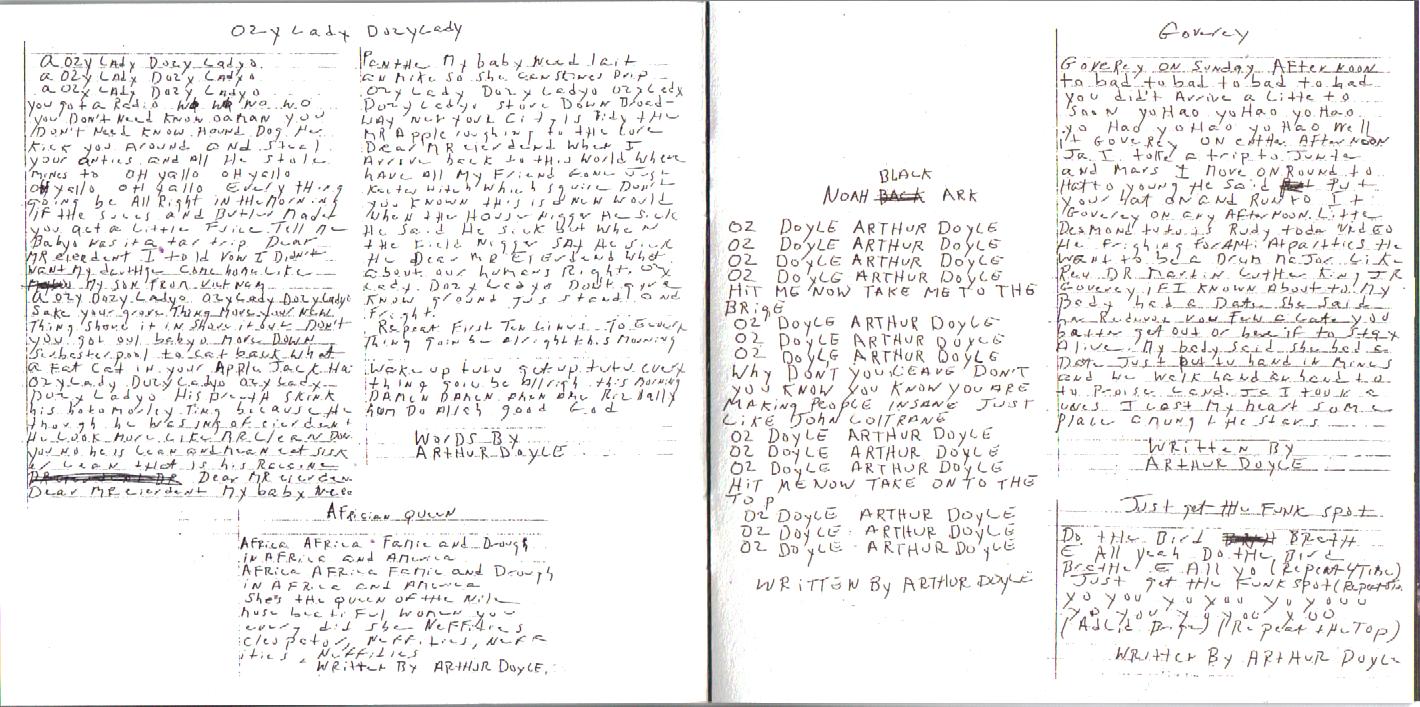 Ozy Lady Dozy Lady
A OZY LADY DOZY LADYO.
A OZY LADY DOZY LADYO
A OZY LADY DOZY LADYO
you got a Radio WO WO WO WO
you DON'T NEED KNOW you
DON'T NEED KNOW HOUND DOG He
Kick you AROUND AND Steal
your antics and All He stole
mines to OH yallo OH yallo
OH yallo OH yallo EVERY tHing
going be All Right IN tHe MORNING
if tHe and Butler Made
you get a Little Tell Me
Babyo Was it a far trip Dear
MR eierdent I told You I DIDN't
Want My Come home Like
My SON FROM VIETNAM
A OZY DOZY LADYO OZYLADY DOZYLADYO
Sake your grove THING MOVE your REAL
THING SHOVE it IN SHOVE it OUT DON'T
you got owl babyo MORE DOWN
to cat bauk What
a FAt CAt iN your APPLe JACK HA
OZY LADY DOZY LADYO OZY LADY
DOZY LADYO His SKINK
his because He
though he WAS of eierdent
He LOOK MORE LIKE MR CLEAN DON
you NO he is LEAN and MEAN cat
or LEAN that is his
Dear MR eierden
Dear MR eierdent My baby Nee
My baby Need
an Mike So She Can Drip
OZY LADY DOZY LADYO OZY LADY
DOZY LADYO Store DOWN BROAD-
WAY New York City is Tidy tHe
MR Apple to tHe Core
Dear MR eierdent When I
Arrive back to tHis World Where
have ALL My Friend Gone Just
Witch Which squire Don't
you KNOWN tHis is a New World
When tHe House Nigger He Sick
He Said He Sick but When
tHe Field Nigger SAY He Sick
He Dear MR Eierdend What
about our humans Right. OZY
Lady. Dozy Ladyo Don't give
KNOW ground Jus stand and
Fright.
Repeat First Ten Linus To Every
Thing goin be alright this Morning
Wake up tutu get up tutu every
thing goin be allrigh this Morning
DAMEN DAMEN
hum Do good God
WORDS BY
ARTHUR DOYLE
AFRICIAN QUEEN
AFRICA AFRICA FAMIE and Drough
IN AFRICA and AMERICA
AFRICA AFRICA FAMIE and Drough
IN AFRICA and AMERICA
She's tHe QUEEN OF tHe Nile
most beati FUL WOMEN you
every did she NeFFities
cleopator, NeFF ities, NeFF
ities, NeFFities
WRitter BY ARTHUR DOYLE.
BLACK
NOAH BACK ARK
OZ DOYLE ARTHUR DOYLE
OZ DOYLE ARTHUR DOYLE
OZ DOYLE ARTHUR DOYLE
OZ DOYLE ARTHUR DOYLE
HIT ME NOW TAKE ME TO THE
BRIGE
OZ DOYLE ARTHUR DOYLE
OZ DOYLE ARTHUR DOYLE
OZ DOYLE ARTHUR DOYLE
WHY DON'T YOU LEAVE DON'T
YOU KNOW YOU KNOW YOU ARE
MAKING PEOPLE INSANE JUST
LIKE JOHN COLTRANE
OZ DOYLE ARTHUR DOYLE
OZ DOYLE ARTHUR DOYLE
OZ DOYLE ARTHUR DOYLE
HIT ME NOW TAKE ON TO THE
TOP
OZ DOYLE ARTHUR DOYLE
OZ DOYLE ARTHUR DOYLE
OZ DOYLE ARTHUR DOYLE
WRITTEN BY ARTHUR DOYLE
Goverey
GOVEREY ON SUNDAY AFTERNOON
to bad to bad to bad to bad
you didn't Arrive a Litte to
Soon yoHao yoHao yoHao
yo Hao yoHao yo Hao Well
it GOVEREY ON AFTERNOON
Ja I take a trip to
and Mars I Move ON ROUND to
Hatto young He Said Put
your Hat ON and RUN to It
Goverey ON any AFTERNOON. Litte
DESMOND tutu is Rudy toda
He frighing For ANti Atpartties He
Want to be a DRUM MAJOR Like
Rev DR Martin Luther King JR
Goverey IF I KNOWN About to My
Body had a Date. She Said
You
batter get out or if to Stay
Alive. My body Said She had a
Date Just put to hand in Mines
and We Walk hand an hand to
to Land. Ja I took a
I Lost My heart Some
Place among tHe Stars
WRITTEN BY
ARTHUR DOYLE
Just get tHe FUNK Spot
Do tHe Bird BRETH
E All Yeah Do tHe Bird
BretHe E All yo (Repeat 4 Time)
Just get tHe FUNK SPOt (Repeat
yo you yo you yo youu
yo you yo you you
(AdLib Brige) (Repeat tHe Top)
WRitter BY ARTHUR DOYLE